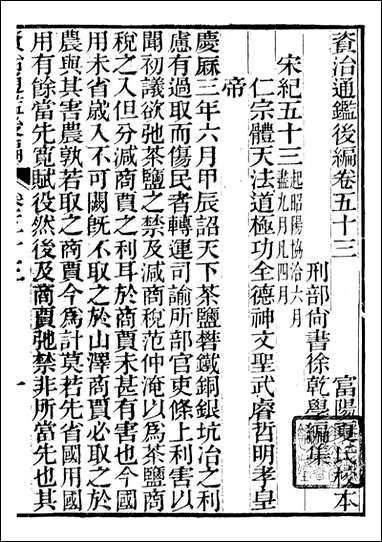 資治通鑑後編卷五十三
富陽夏氏校本
刑部尚書徐乾學編集
宋紀五十三
起昭陽協洽六月
盡九月凡四月
仁宗體天法道極功全德神文聖武睿哲明孝皇
帝
慶厯三年六月甲辰詔天下茶鹽礬鐵銅銀坑冶之利
慮有過取而傷民者轉運司諭所部官吏條上利害以
聞初議欲弛茶鹽之禁及減商稅范仲淹以為茶鹽商
稅之入但分減商賈之利耳於商賈未甚有害也今國
用未省歲入不可闕旣不取之於山澤商賈必取之於
農與其害農孰若取之商賈今為計莫若先省國用國
用有餘當先寬賦役然後及商賈弛禁非所當先也其
資治通鑑後編
卷五十三
一